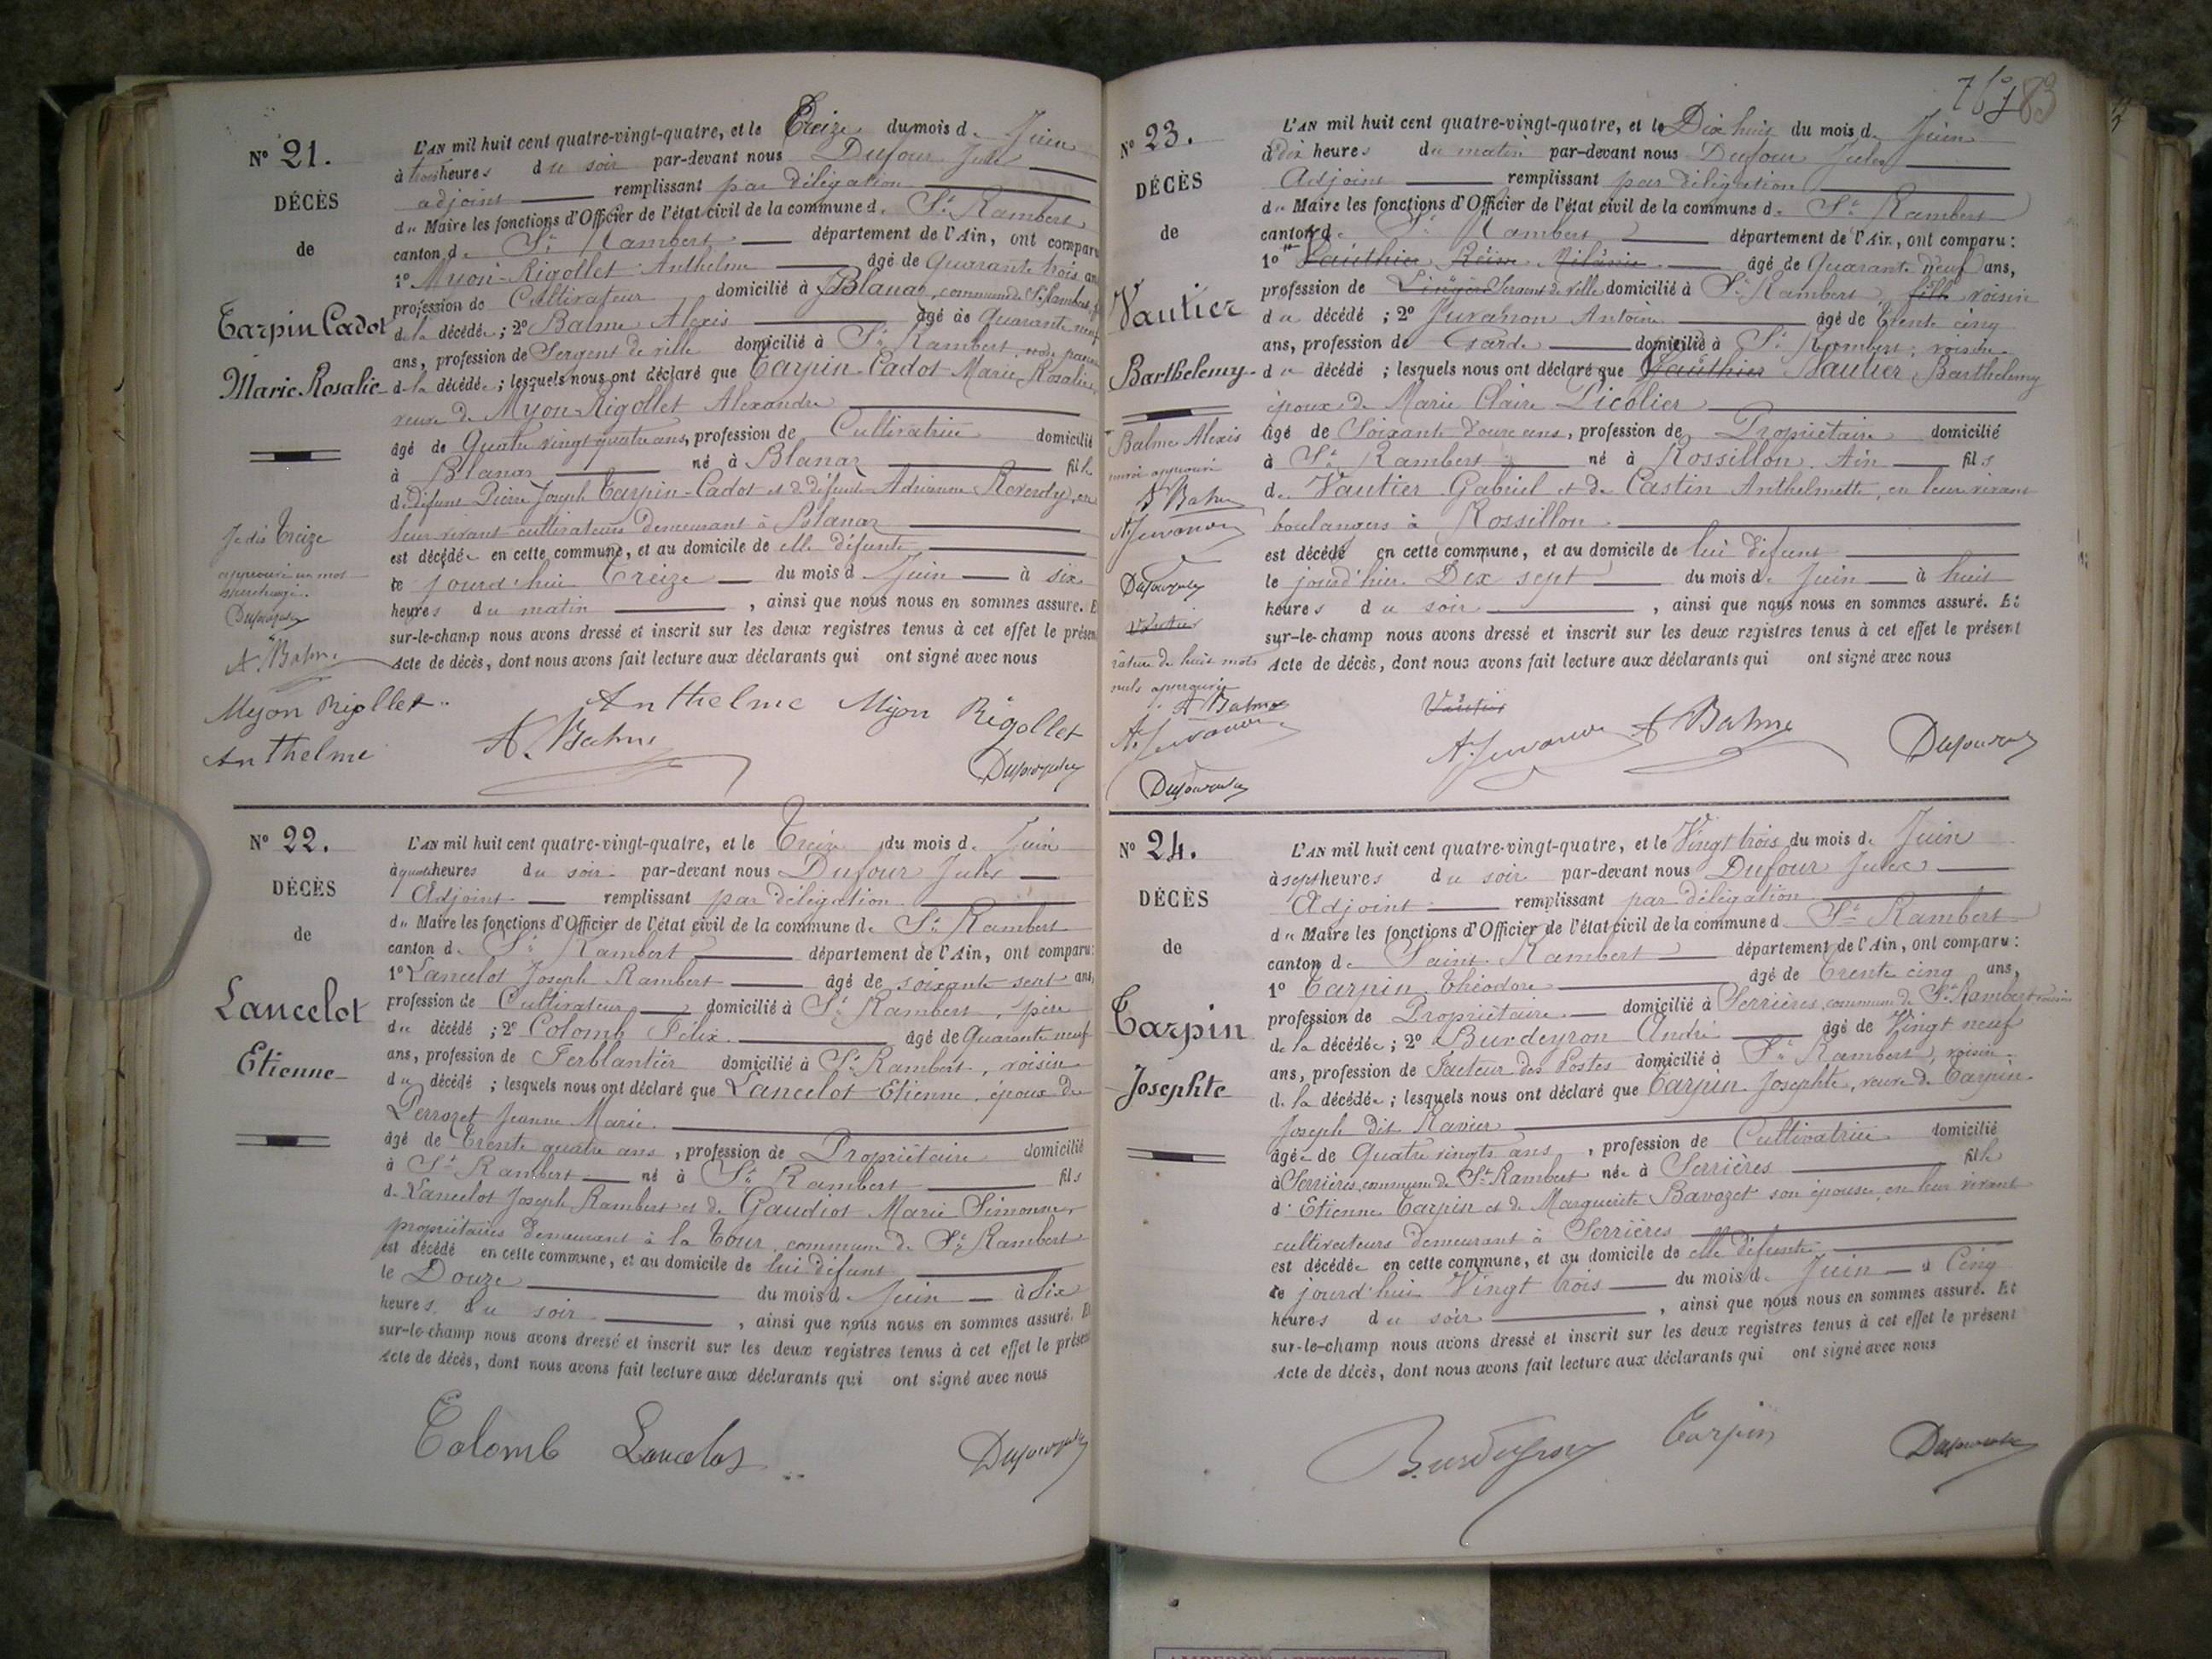 Nº 21.
DÉCÈS
de
Tarpin Cadot
Marie Rosalie
Je dis Treize
approuvé un mot
surchargé.
A. Balme
Myon Rigollet
Anthelme
L'AN mil huit cent quatre-vingt-quatre, et le Treize du mois de Juin
à trois heures du soir par-devant nous Dufour Jules
adjoint remplissant par délégation
du Maire les fonctions d'Officier de l'état civil de la commune de St Rambert
canton de St Rambert département de l'Ain, ont comparu
1º Myon-Rigollet Anthelme âgé de Quarante trois ans
profession de Cultivateur domicilié à Blanaz, commune de St Rambert,
de la décédée; 2º Balme Alexis âgé de Quarante neuf
ans, profession de Sergent de ville domicilié à St Rambert,
de la décédée; lesquels nous ont déclaré que Tarpin-Cadot Marie Rosalie,
veuve de Myon-Rigollet Alexandre
âgé de Quatre vingt quatre ans, profession de Cultivatrice domicilié
à Blanaz né à Blanaz fille
de défunt Pierre Joseph Tarpin-Cadot et de défunte Adrianne Reverdy, en
leur vivant cultivateurs demeurant à Blanaz
est décédée en cette commune, et au domicile de elle défunte
le jourd'hui Treize du mois de Juin à six
heures du matin, ainsi que nous nous en sommes assuré. E
sur-le-champ nous avons dressé et inscrit sur les deux registres tenus à cet effet le présen
Acte de décès, dont nous avons fait lecture aux déclarants qui ont signé avec nous
Anthelme Myon Rigollet
A. Balme
Nº 22.
DÉCÈS
de
Lancelot
Etienne
L'AN mil huit cent quatre-vingt-quatre, et le Treize du mois de Juin
à quatre heures du soir par-devant nous Dufour Jules
Adjoint remplissant par délégation
du Maire les fonctions d'Officier de l'état civil de la commune de St Rambert
canton de St Rambert département de l'Ain, ont comparu:
1º Lancelot Joseph Rambert âgé de soixante sept ans,
profession de Cultivateur domicilié à St Rambert, père
du décédé; 2º Colomb Félix âgé de Quarante neuf
ans, profession de Ferblantier domicilié à St Rambert, voisin
du décédé; lesquels nous ont déclaré que Lancelot Etienne, époux de
Perrozet Jeanne Marie.
âgé de Trente quatre ans, profession de Propriétaire domicilié
à St Rambert né à St Rambert fils
de Lancelot Joseph Rambert et de Gaudiot Marie Simonne,
propriétaires demeurant à la Tour, commune de St Rambert
est décédé en cette commune, et au domicile de lui défunt
le Douze du mois de Juin à Six
heures du soir, ainsi que nous nous en sommes assuré. Et
sur-le-champ nous avons dressé et inscrit sur les deux registres tenus à cet effet le présent
Acte de décès, dont nous avons fait lecture aux déclarants qui ont signé avec nous
Colomb Lancelot
83
Nº 23.
DÉCÈS
de
Vautier
Barthelemy
Balme Alexis
A Balme
A. Juvanon
Vautier
rature de huit mots
nuls approuvée
A Balme
A. Juvanon
L'AN mil huit cent quatre-vingt-quatre, et le Dix huit du mois de Juin
à dix heures du matin par-devant nous Dufour Jules
Adjoint remplissant par délégation
du Maire les fonctions d'Officier de l'état civil de la commune de St Rambert
canton de St Rambert département de l'Ain, ont comparu:
1º Vauthier Reine Mélanie âgé de Quarante neuf ans,
profession de Lingère Sergent de ville domicilié à St Rambert, fille voisin
du décédé; 2º Juvanon Antoine âgé de Trente cinq
ans, profession de Garde domicilié à St Rambert, voisin
du décédé; lesquels nous ont déclaré que Vauthier Vautier Barthelemy
époux de Marie Claire Licolier
âgé de Soixante douze ans, profession de Propriétaire domicilié
à St Rambert né à Rossillon. Ain fils
de Vautier Gabriel et de Castin Anthelmette, en leur vivant
boulangers à Rossillon
est décédé en cette commune, et au domicile de lui défunt
le jourd'hier Dix sept du mois de Juin à huit
heures du soir, ainsi que nous nous en sommes assuré. Et
sur-le-champ nous avons dressé et inscrit sur les deux registres tenus à cet effet le présent
Acte de décès, dont nous avons fait lecture aux déclarants qui ont signé avec nous
Vautier
A. Juvanon A Balme
Nº 24.
DÉCÈS
de
Tarpin
Josephte
L'AN mil huit cent quatre-vingt-quatre, et le Vingt trois du mois de Juin
à sept heures du soir par-devant nous Dufour Jules
Adjoint remplissant par délégation
du Maire les fonctions d'Officier de l'état civil de la commune d St Rambert
canton de Saint Rambert département de l'Ain, ont comparu:
1º Tarpin Théodore âgé de Trente cinq ans,
profession de Propriétaire domicilié à Serrières, commune de St Rambert, voisin
de la décédée; 2º Burdeyron André âgé de Vingt neuf
ans, profession de Facteur des Postes domicilié à St Rambert, voisin
de la décédée; lesquels nous ont déclaré que Tarpin Josephte, veuve de Tarpin
Joseph dit Ravier
âgée de Quatre vingts ans, profession de Cultivatrice domicilié
à Serrières, commune de St Rambert née à Serrières fille
d'Etienne Tarpin et de Marguerite Bavozet son épouse, en leur vivant
cultivateurs demeurant à Serrières
est décédée en cette commune, et au domicile de elle défunte
le jourd'hui Vingt trois du mois de Juin à Cinq
heures du soir, ainsi que nous nous en sommes assuré. Et
sur-le-champ nous avons dressé et inscrit sur les deux registres tenus à cet effet le présent
Acte de décès, dont nous avons fait lecture aux déclarants qui ont signé avec nous
Burdeyron Tarpin